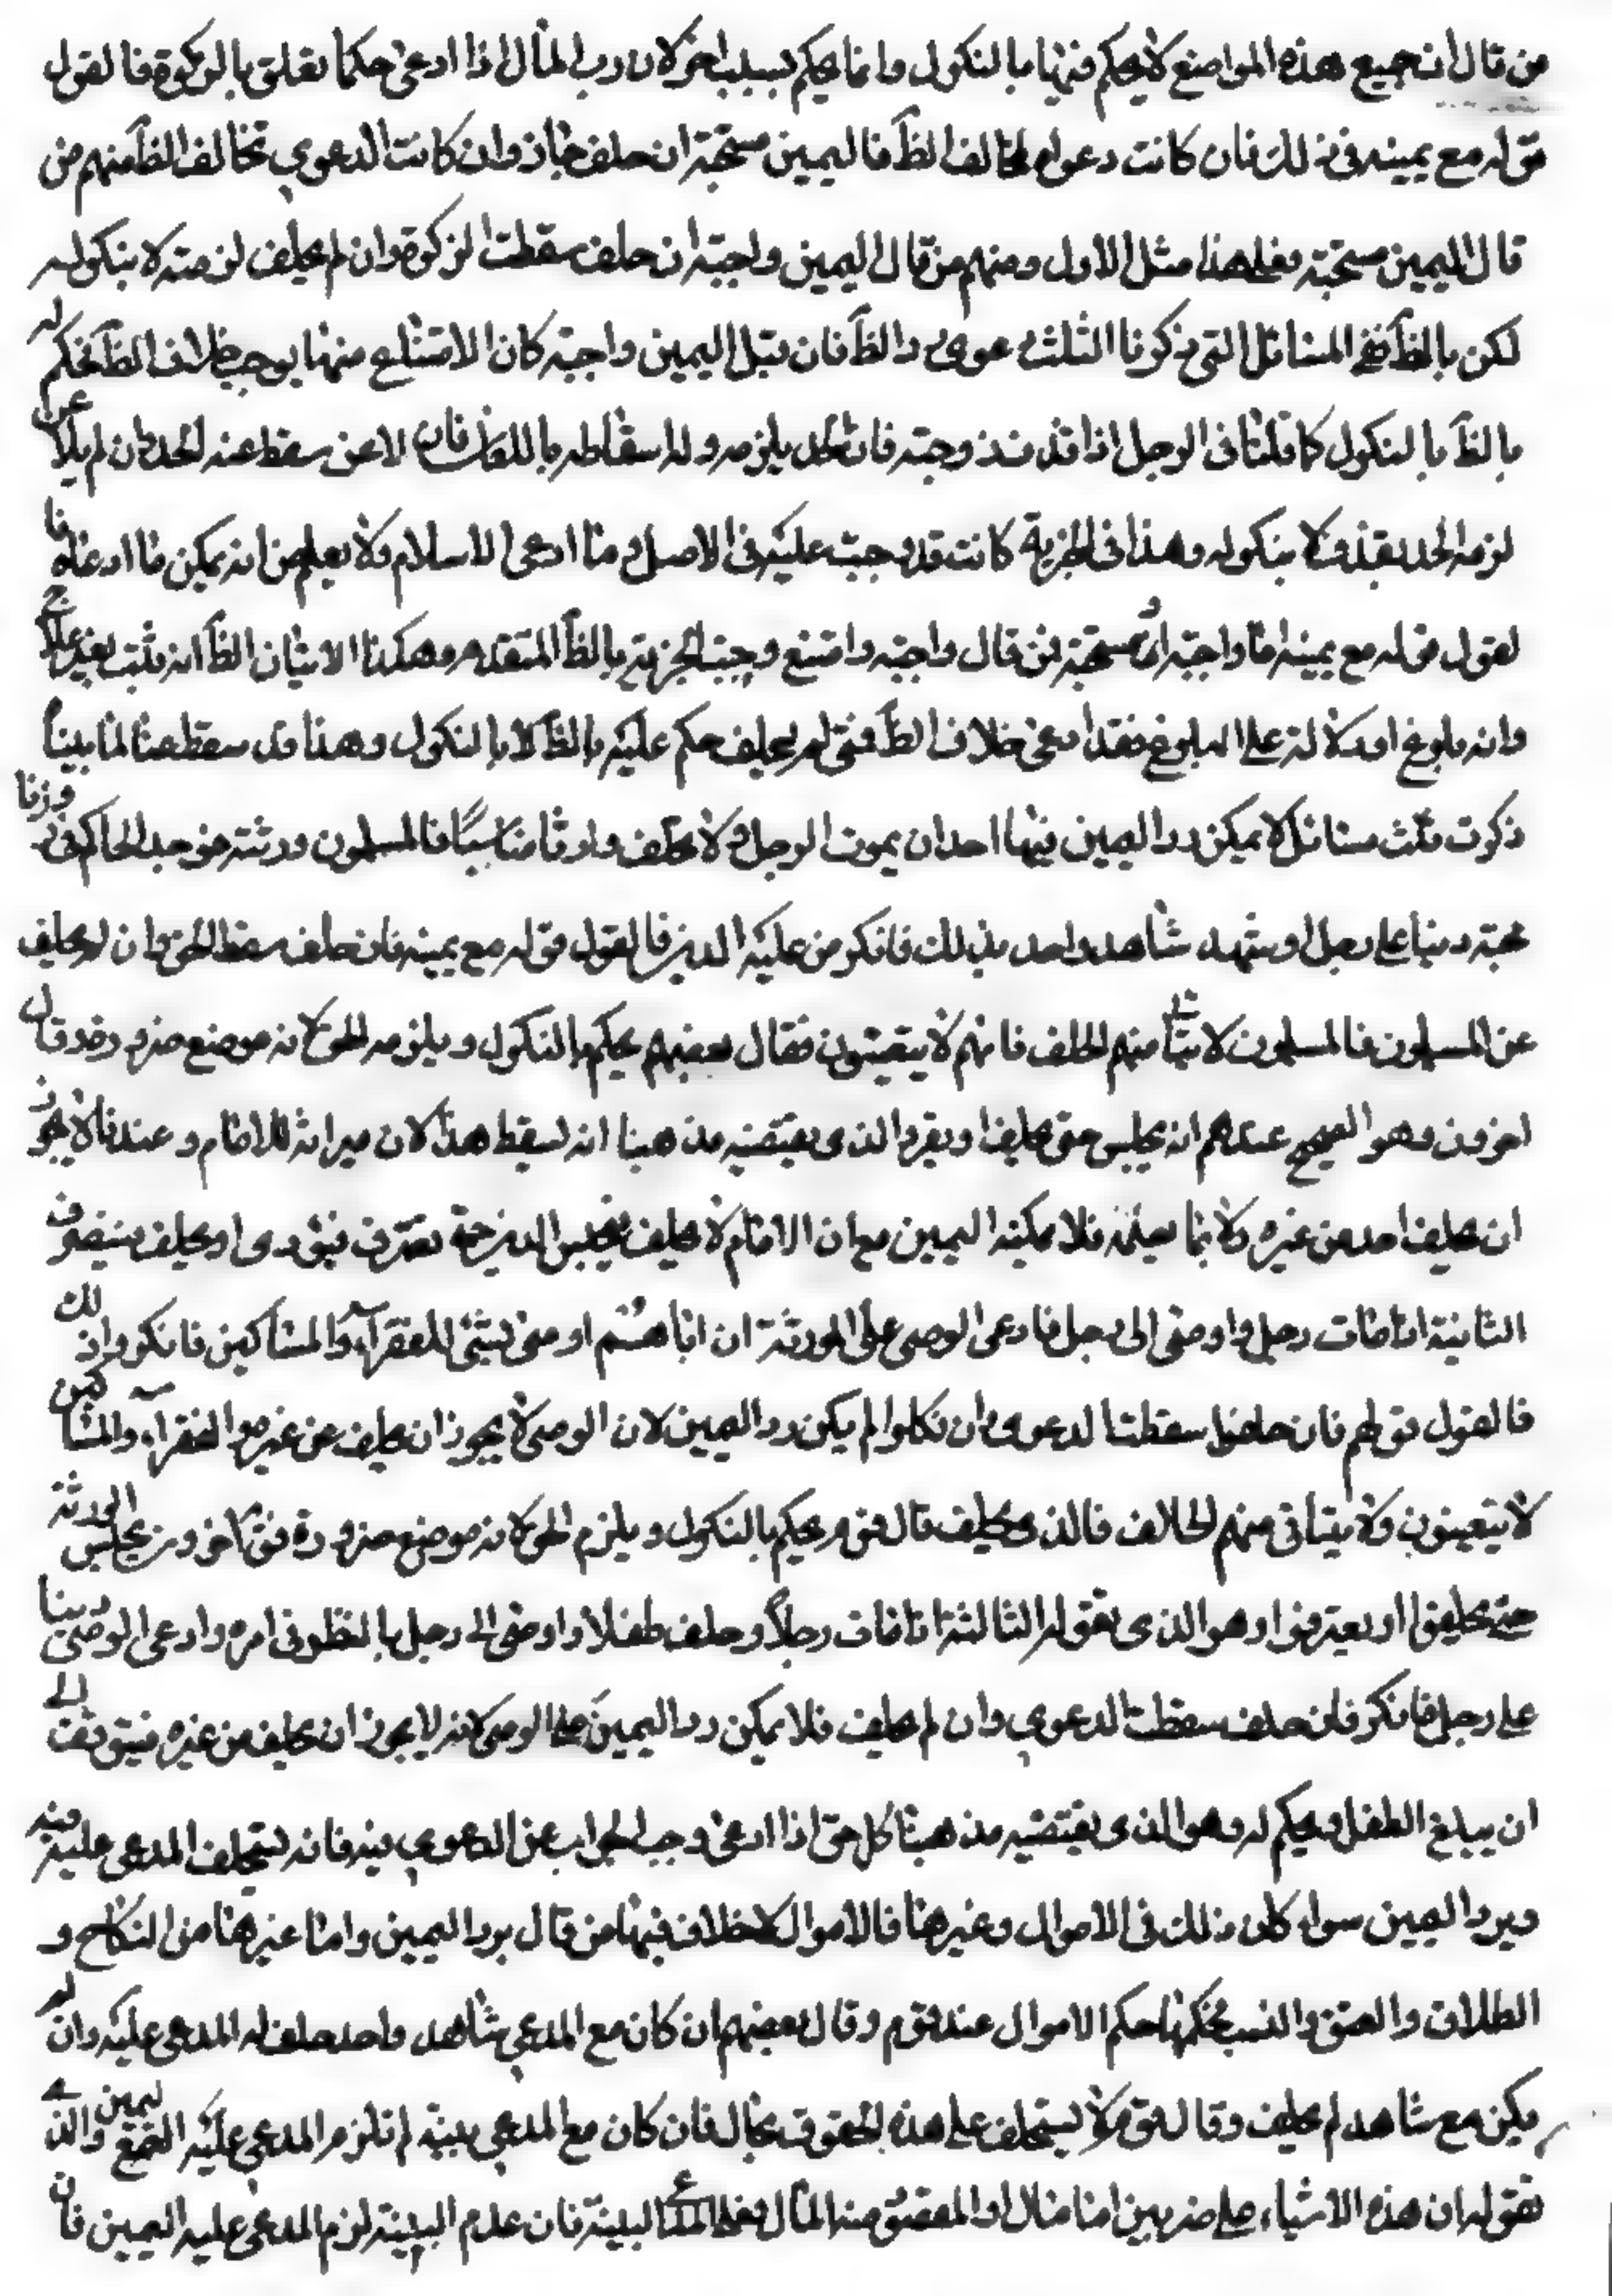 من قال ان جميع هذه المواضع لا يحكم فيها بالنكول وانما يحكم بسبب اخر لان رب المال اذا ادعى حكما تعلق بالزكوة فالقول
قوله مع يمينه في ذلك فان كانت دعواه لا تخالف الظ فاليمين مستحبة ان حلف جاز وان كانت الدعوى تخالف الظ منهم من
قال اليمين مستحبة فعلى هذا مثل الاول ومنهم من قال اليمين واجبة ان حلف سقطت الزكوة وان لم يحلف لزمته لا بنكوله
لكن بالظ ففي المسائل التي ذكرنا الثلث دعوى والظ فان قيل اليمين واجبة كان الامتناع منها يوجب خلاف الظ فحكم له
بالظ بالنكول كما قلنا في الرجل اذا قذف زوجته فان الحد يلزمه وله اسقاطه باللعان فان لاعن سقط عنه الحد وان لم يلاعن
لزمه الحد بقذفه لا بنكوله وهذا في الجزية كانت قد وجبت عليه في الاصل وما ادعى الاسلام ولا يعلم من انه يمكن ما ادعاه فا
لقول قوله مع يمينه اما واجبة او مستحبة فمن قال واجبة وامتنع وجبت الجزية بالظ المتقدم وهكذا الانبثان الظ انه نبت بغير علاج
وانه بلوغ او دلالة على البلوغ فقد ادعى خلاف الظ فمتى لم يحلف حكم عليه بالظ لا بالنكول وهذا قد سقط عنا لما بينا
ذكرت ثلث مسائل لا يمكن رد اليمين فيها احدان يموت الرجل ولا يخلف وارثا مناسبا فالمسلمون ورثته فوجد الحاكم في روزنا
مجته دينا على رجل او شهد شاهد واحد بذلك فانكر من عليه الدين فالقول قوله مع يمينه فان حلف سقط الحق وان لم يحلف
عن المسلمون فالمسلمون لا يتاتى منهم الحلف فانهم لا يتعينون فقال بعضهم يحكم بالنكول ويلزمه الحق لانه موضع ضرورة وقد قال
اخرون وهو الصحيح عندهم انه يحبس حتى يحلف او يقر والذي يقتضيه مذهبنا انه يسقط هذا لان ميراثه للامام وعندنا لا يجوز
ان يحلف احد عن غيره ولا بما يعلمه فلا يمكنه اليمين مع ان الامام لا يحلف فيحبس الدين حتى يعترف فيؤدى او يحلف وينصرف
الثانية اذا مات رجل واوصى الى رجل فادعى الوصي على الورثة ان اباهم اوصى بشئ للفقراء والمساكين فانكروا ذلك
فالقول قولهم فان حلفوا سقطت الدعوى وان نكلوا لم يمكن رد اليمين لان الوصي لا يجوز ان يحلف عن غيره والفقراء والمساكين
لا يتعينون ولا يتاتى منهم الحلاف فالذي يحلف قال قوم يحكم بالنكول ويلزم الحق لانه موضع ضرورة وقال اخرون يحبس الورثة
حتى يحلفوا او يعترفوا وهو الذي نقوله الثالثة اذا مات رجلا وخلف طفلا واوصى الى رجل بالنظر في امره وادعى الوصي دينا
على رجل فانكر فان حلف سقطت الدعوى وان لم يحلف فلا يمكن رد اليمين على الوصي لانه لا يجوز ان يحلف عن غيره فيتوقف الى
ان يبلغ الطفل ويحكم له وهو الذي يقتضيه مذهبنا كل حق اذا ادعى وجب الجواب عن الدعوى فيه فانه يستحلف المدعى عليه فيه
ويرد اليمين سواء كان ذلك في الاموال وغيرها فالاموال لا خلاف فيها من قال برد اليمين واما غيرها من النكاح و
الطلاق والعتق والنسب فحكمها حكم الاموال عند قوم وقال بعضهم ان كان مع المدعي شاهد واحد حلف له المدعى عليه وان لم
يكن مع شاهد لم يحلف وقال قوم لا يستحلف على هذه الحقوق بحال فان كان مع المدعي بينة لم تلزم المدعى عليه اليمين والذي
نقوله ان هذه الاشياء على ضربين اما مال او المقصود منه المال فعلى المدعي البينة فان عدم البينة لزم المدعى عليه اليمين فان